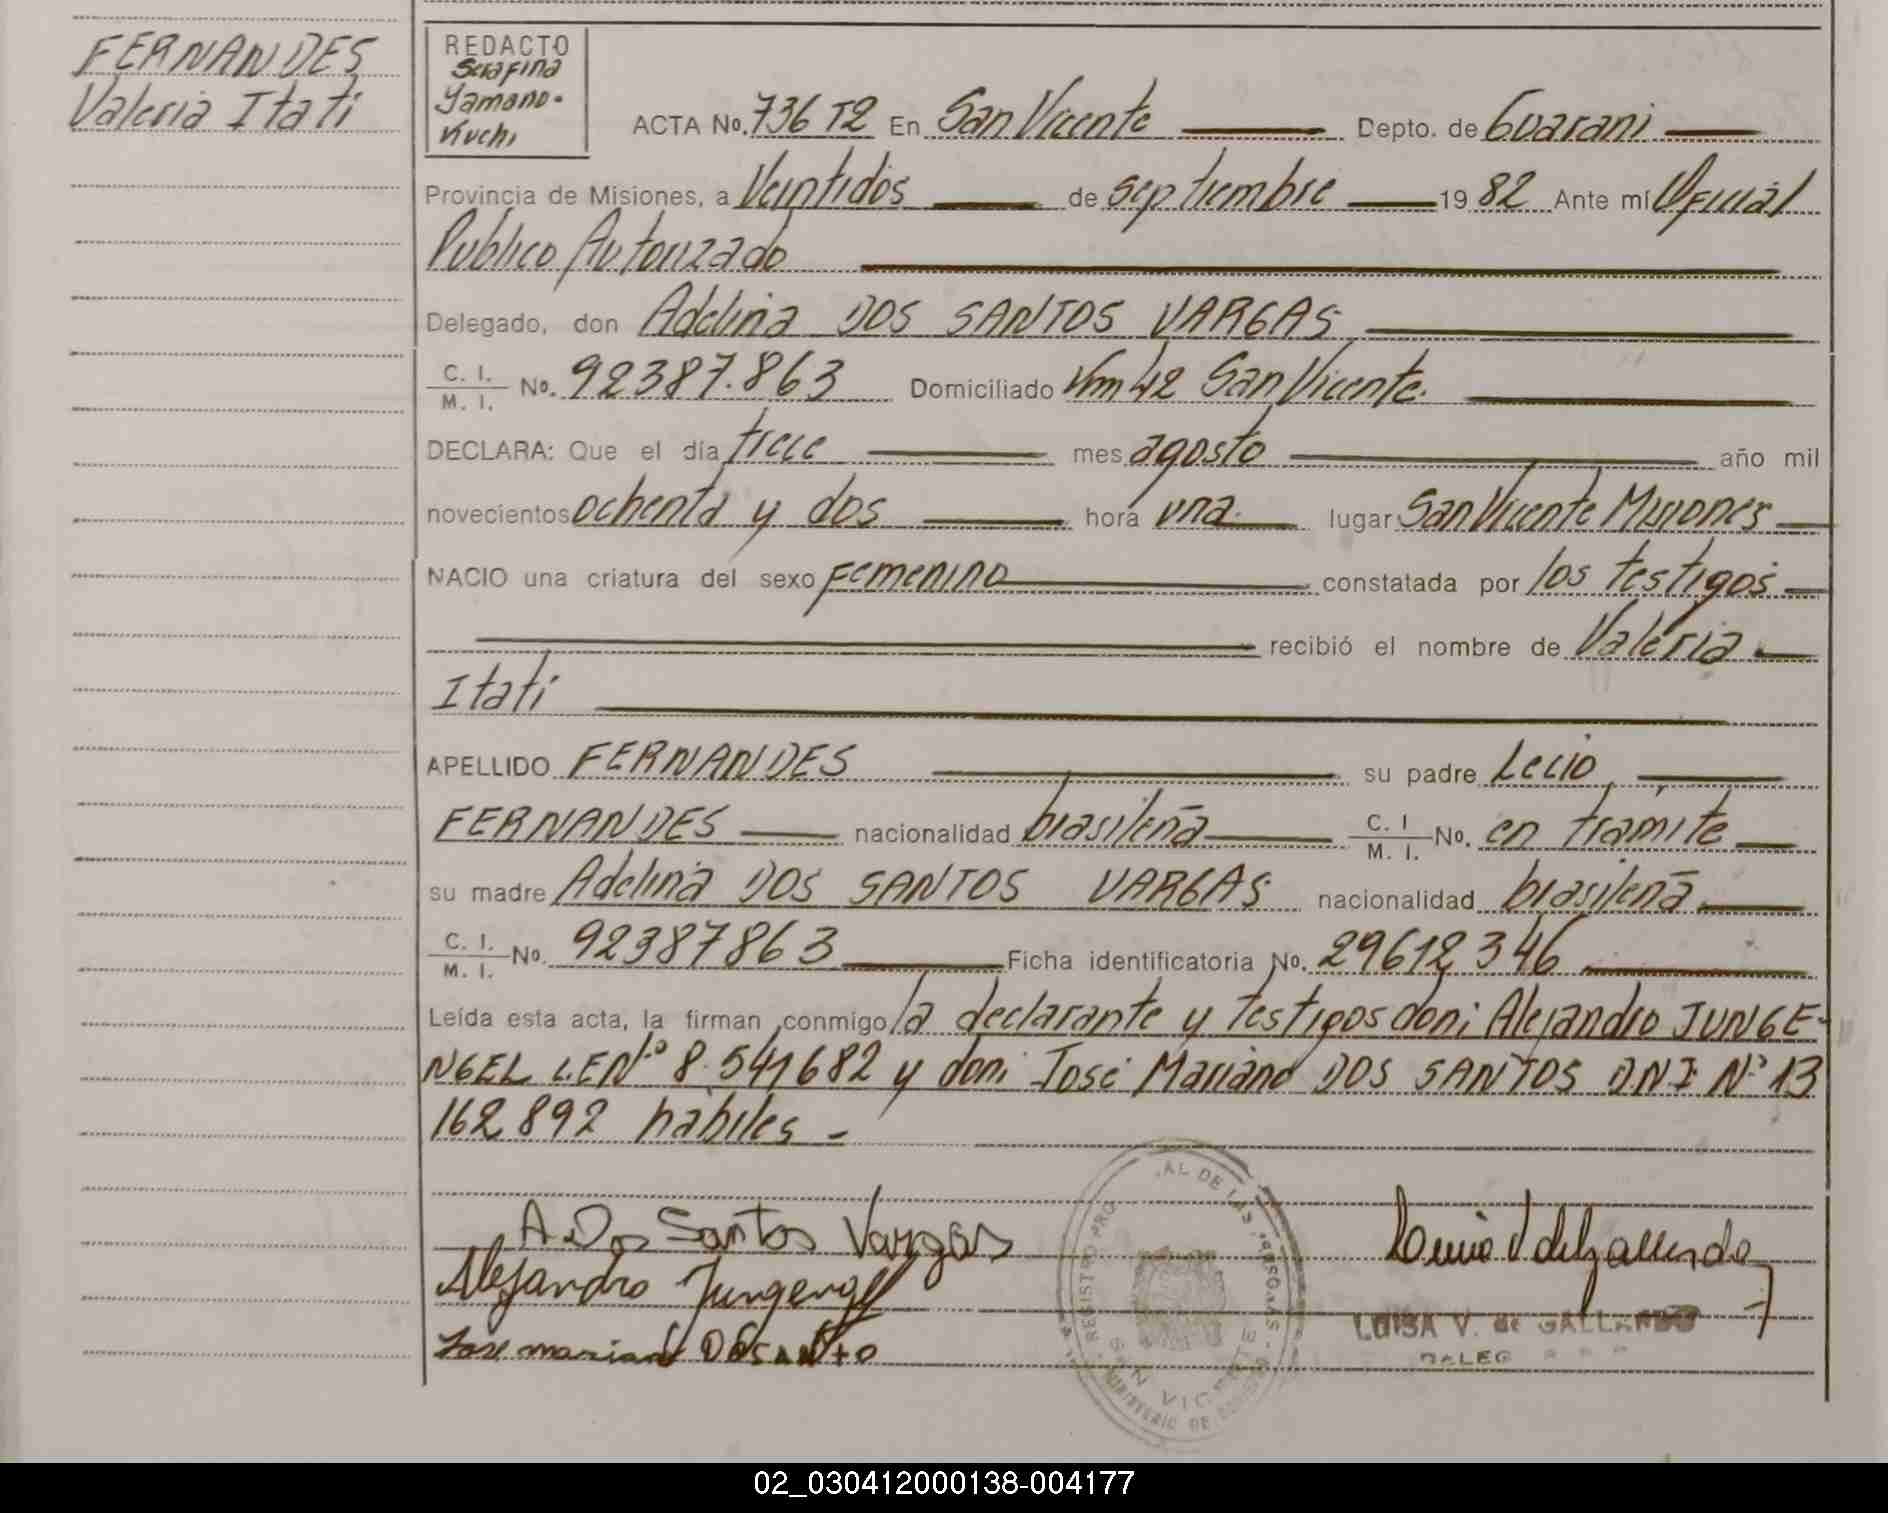 FERNANDES
Valeria Itati
REDACTO
Serafina
Yamano-
Kuchi
ACTA No. 736 T2 En San Vicente Depto. de Guarani
Provincia de Misiones, a Veintidos de septiembre 1982 Ante mí Oficial
Publico Autorizado
Delegado, don Adelina DOS SANTOS VARGAS
C. I.
M. I. No. 92387.863 Domiciliado Km 42 San Vicente.
DECLARA: Que el día trece mes agosto año mil
novecientos ochenta y dos hora una lugar San Vicente Misiones
NACIO una criatura del sexo femenino constatada por los testigos
recibió el nombre de Valeria
Itati
APELLIDO FERNANDES su padre Lecio
FERNANDES nacionalidad brasileña C. I
M. I. No. en tramite
su madre Adelina DOS SANTOS VARGAS nacionalidad brasileña
C. I.
M. I. No. 92387863 Ficha identificatoria No. 29612346
Leída esta acta, la firman conmigo la declarante y testigos don: Alejandro JUNGE-
NGEL L.E Nº 8.541682 y don: José Mariano DOS SANTOS D.N.I Nº 13
162892 habiles -
A. Dos Santos Vargas
Alejandro Jungengel
Jose mariano DOSANTO
REGISTRO PRO AL DE LAS PERSONAS
SAN VICENTE
MINISTERIO DE
LUISA V. de GALLARDO
02_030412000138-004177